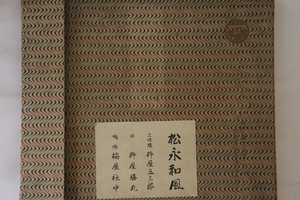 松永和風
三味線 杵屋五三郎
同 杵屋勝丸
鳴物 梅屋社中